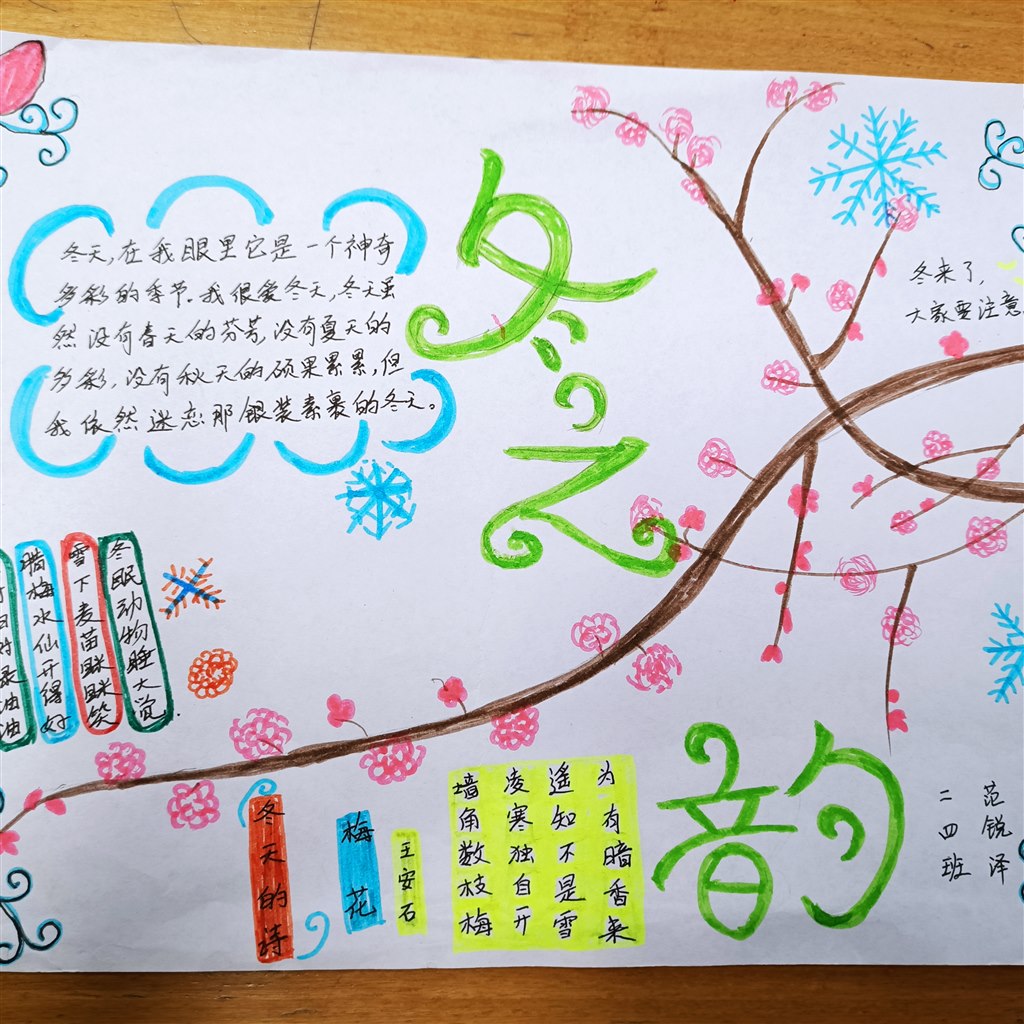 冬之韵
冬天,在我眼里它是一个神奇
多彩的季节.我很爱冬天,冬天虽
然没有春天的芬芳,没有夏天的
多彩,没有秋天的硕果累累,但
我依然迷恋那银装素裹的冬天。
冬来了,
大家要注意
冬眠动物睡大觉.
雪下麦苗眯眯笑
腊梅水仙开得好
绿油油
冬天的诗
梅花
王安石
墙角数枝梅
凌寒独自开
遥知不是雪
为有暗香来
二四班
范锐泽